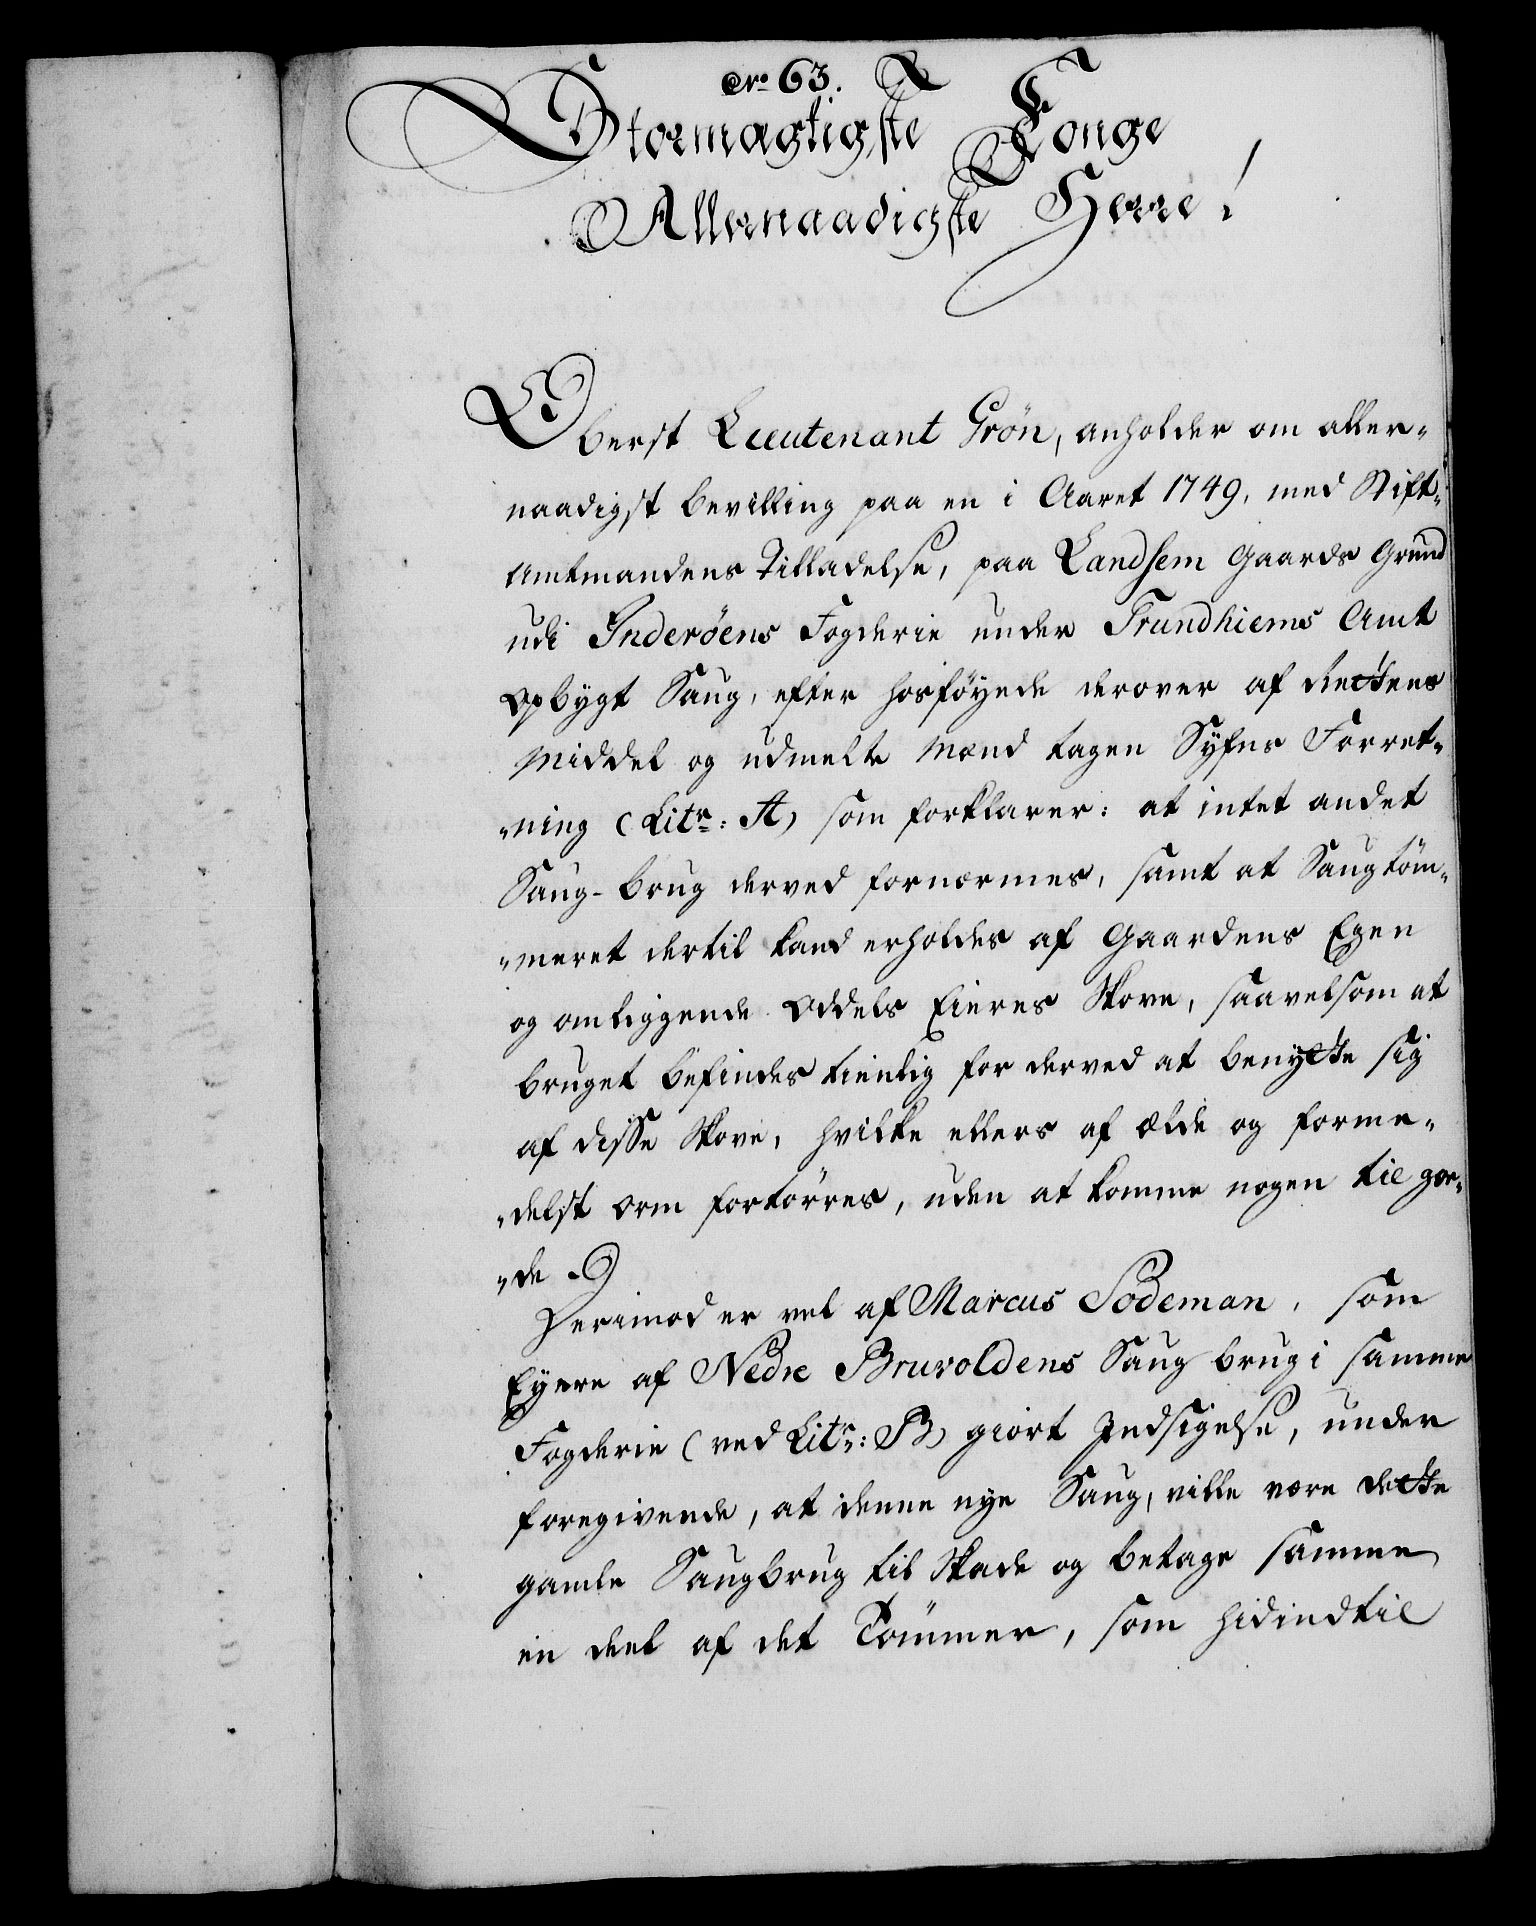 No 63.
Stormægtigste Konge
Allernaadigste Herre!
Oberst Lieutenant Grøn, anholder om aller-
naadigst bevilling paa en i Aaret 1749, med Stift-
Amtmandens Tilladelse, paa Landsem Gaards Grund
udi Inderöens Fogderie under Trundhiems Amt
Opbygt Saug, efter hosföyede derover af Rettens
Middel og udmelte Mænd tagen Syfns Forret-
„ning (Litr: A) som forklarer: at intet andet
Saug-brug derved fornærmes, samt at Saugtöm-
„meret dertil kand erholdes af Gaardens Egen
og omliggende Oddels Eieres Skove, saavelsom at
bruget befindes tienlig for derved at benytte sig
af disse Skove, hvilke ellers af Ælde og forme-
„delst Orm fortörres, uden at komme nogen til go-
„de.
Herimod er vel af Marcus Sodeman, som
Eyere af Nedre Bruvoldens Saug brug i samme
Fogderie (ved Litr: B) giort Indsigelse, under
foregivende, at denne nye Saug, ville være dette
gamle Saugbrug til Skade og betage samme
en deel af det Tömmer, som hidindtil